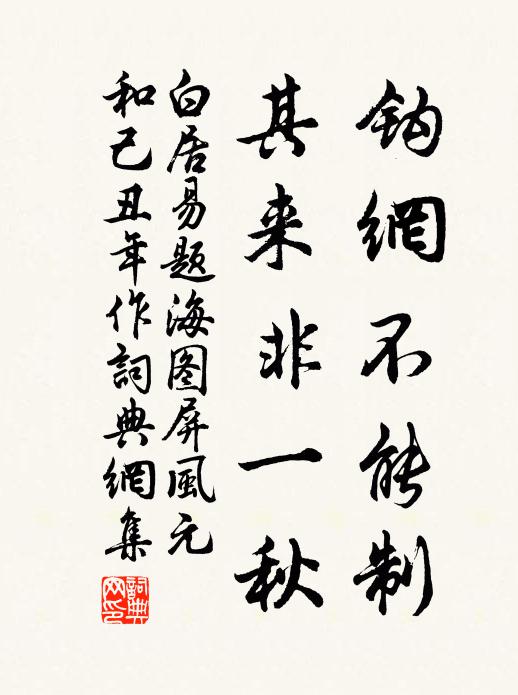 鈎網不能制
其来非一秋
白居易題海图屏風元
和己丑年作詞典網集
詞典网印